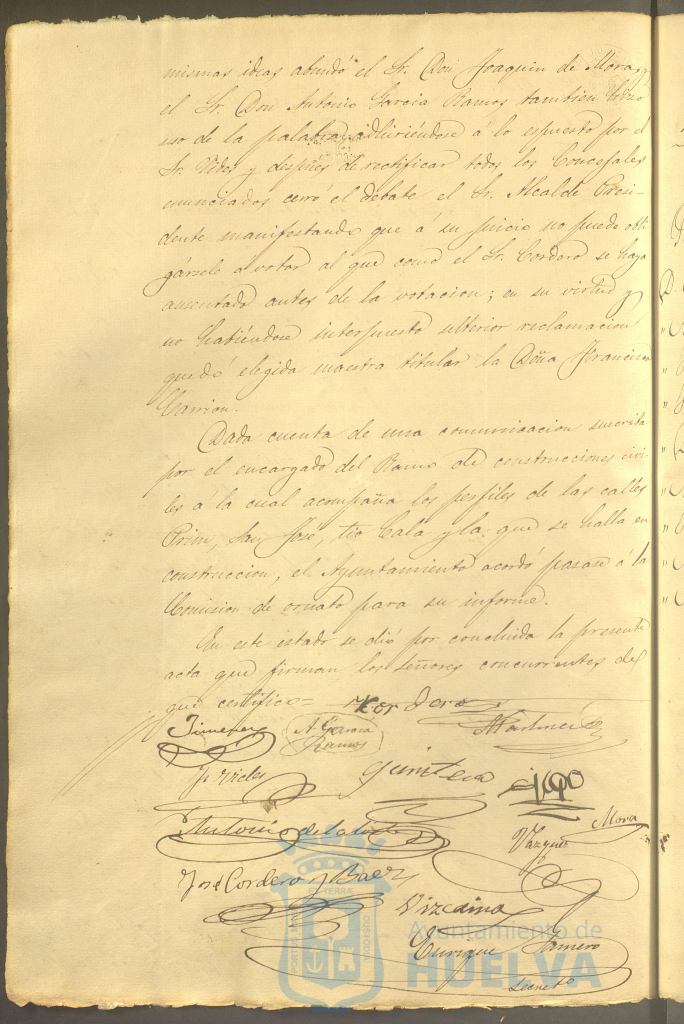 mismas ideas abundó el Sr. Don Joaquin de Mora, y
el Sr. Don Antonio Garcia Ramos tambien hizo
uso de la palabra, adhiriéndose á lo espuesto por el
Sr. Vides y despues de rectificar todos los Concejales
enunciados cerró el debate el Sr. Alcalde Presi-
dente manifestando que á su juicio no puede obli
gársele a votar al que como el Sr. Cordero se haya
ausentado antes de la votacion; en su virtud y
no habiéndose interpuesto ulterior reclamacion
quedó elegida maestra titular la Doña Francisca
Carrion.
Dada cuenta de una comunicacion suscrita
por el encargado del Ramo de construcciones civi-
les á la cual acompaña los perfiles de las calles
Prim, San José, tio Cala y la que se halla en
construccion, el Ayuntamiento acordó pasase á la
Comision de ornato para su informe.
En este estado se dió por concluida la presente
acta que firman los señores concurrentes de
que certifico =
Cordero
Jimenez
A. Garcia
Ramos
Martinez
J. Vides
Quintero
Antonio de la
Vazquez
Mora
José Cordero y Baez
Vizcaino
Enrique
Secreto
Ayuntamiento de
HUELVA